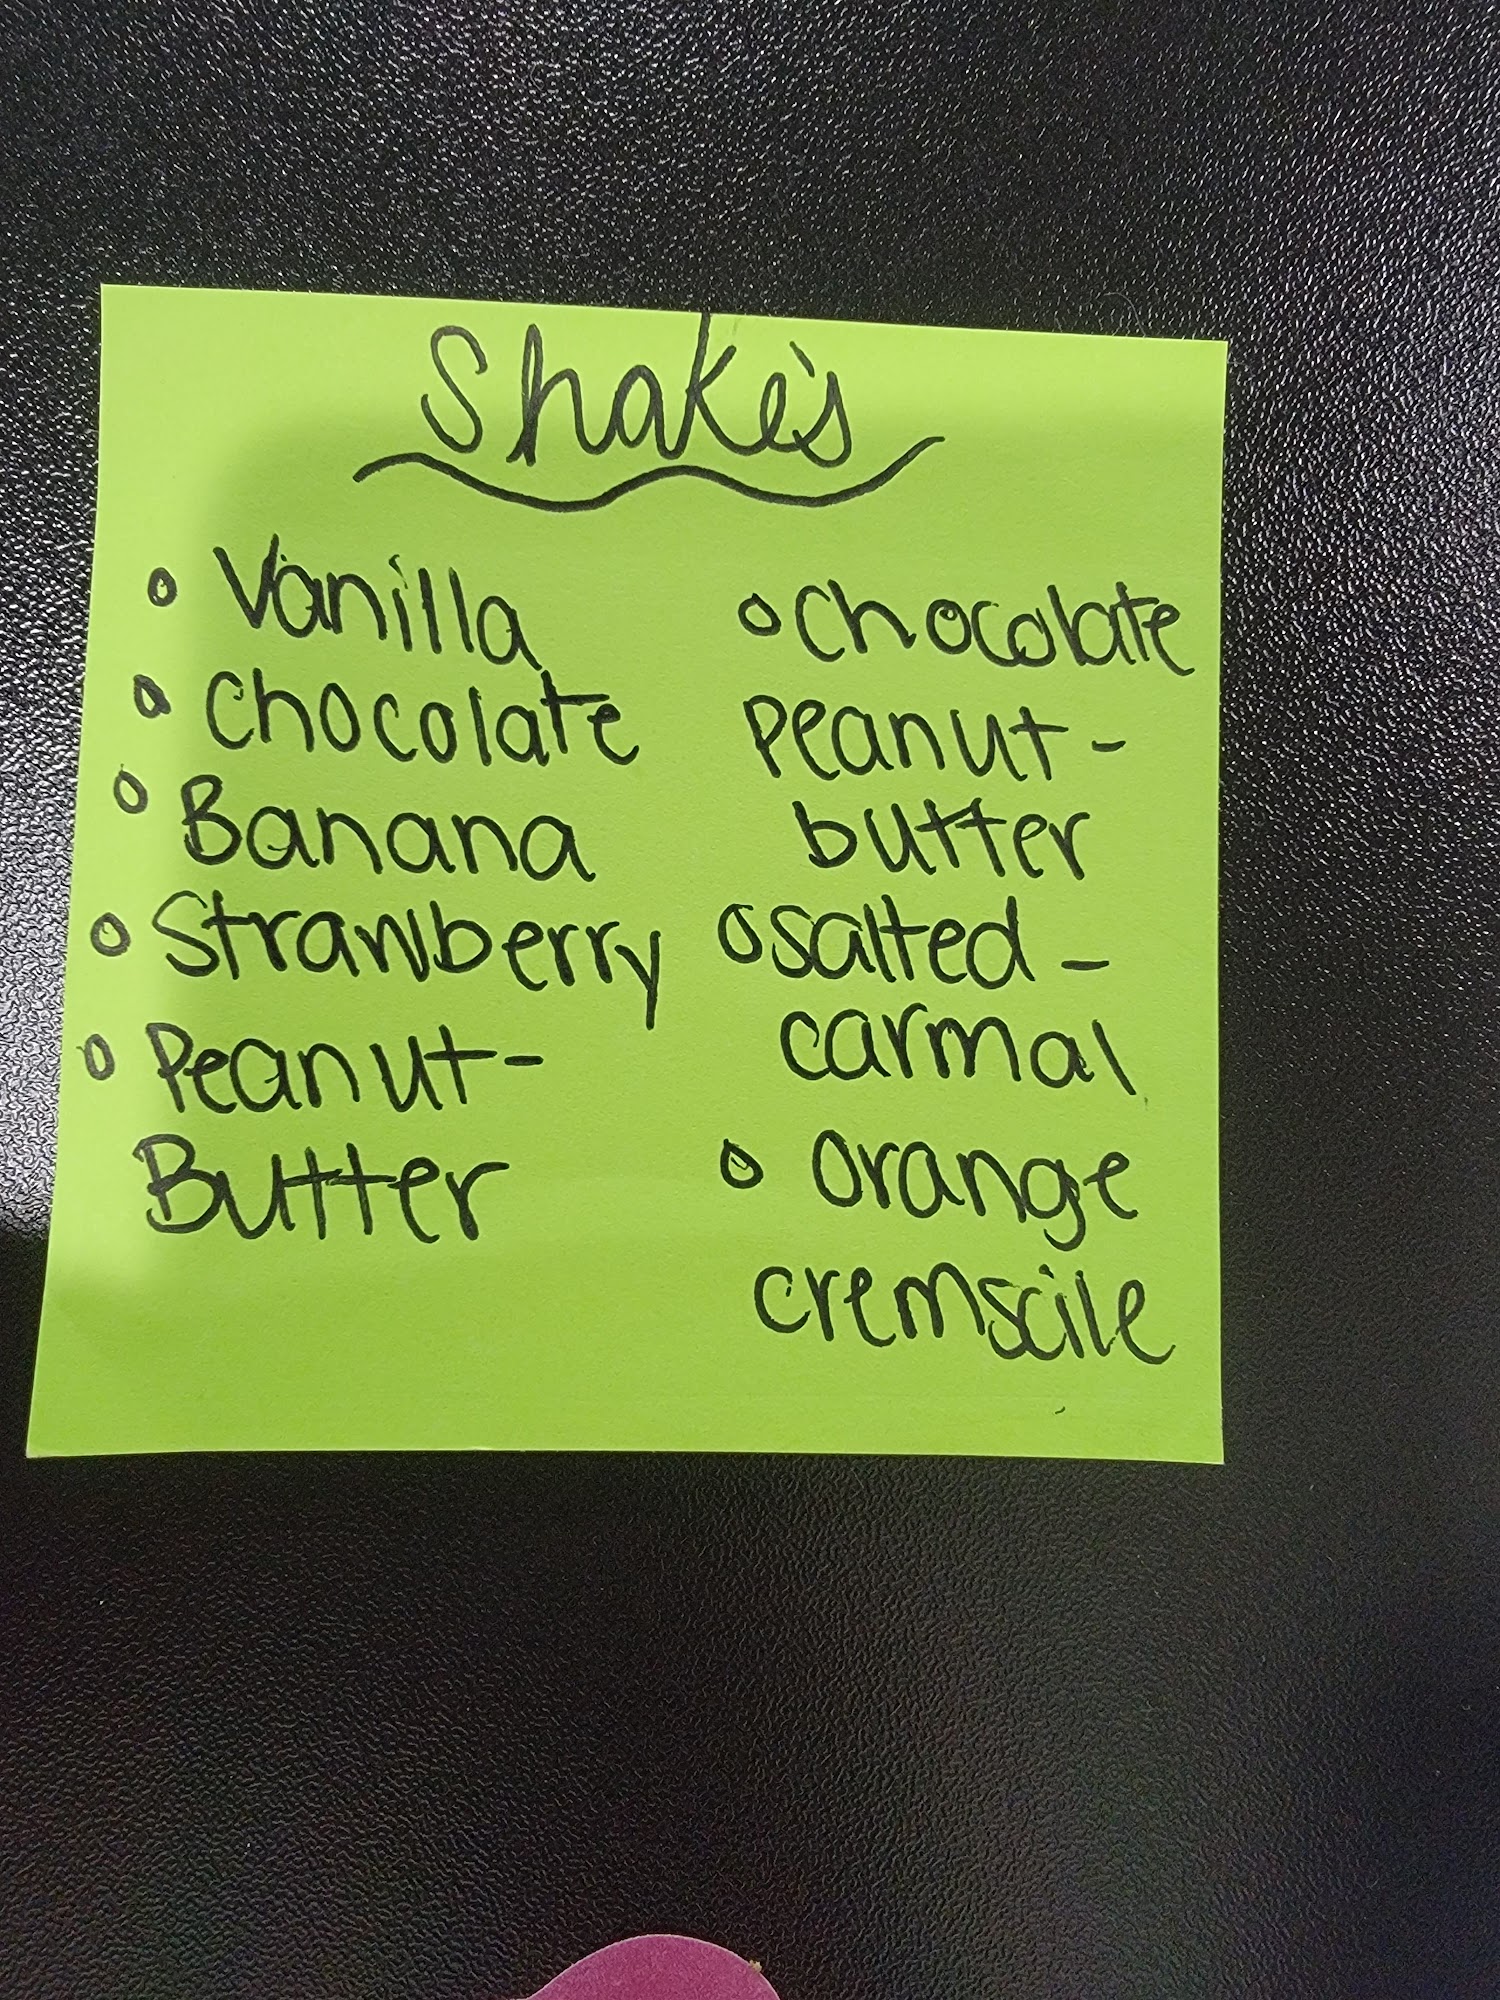 Shake's
• Vanilla
• Chocolate
• Banana
• Strawberry
• Peanut-
Butter
• Chocolate
Peanut-
butter
• salted-
carmal
• orange
cremscile